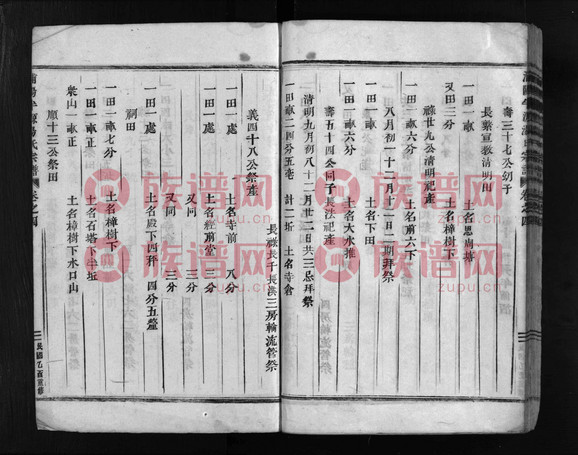 壽三十七公初子
長繫宣教清明田
一田一畝 土名思崗塘
又田三分 土名樟樹下
祿廿九公清明祀產
一田一畝六分 土名前六下
八月初一十二月十一日二期拜祭
一田一畝一分 土名下田
一田一畝六分 土名大水推
壽五十四公同子長法祀產
清明九月初八十二月廿二日共三忌拜祭
一田一畝二四分五毫 計二坵 土名寺倉
長祿長千長洪三房輪流管祭
義四十八公祭產
一田一處 土名寺前 八分
一田一處 土名經前堂 五分
又同 三分
又同 三分
一田一處 土名殿下四秤 四分五釐
祠田
一田一畝七分 土名樟樹下
一田一畝正 土名石塔下半坵
眾山一畝正 土名樟樹下水口山
順十三公祭田
卷之四
民國乙酉重修
族谱网
zupu.cn
族谱网
zupu.cn